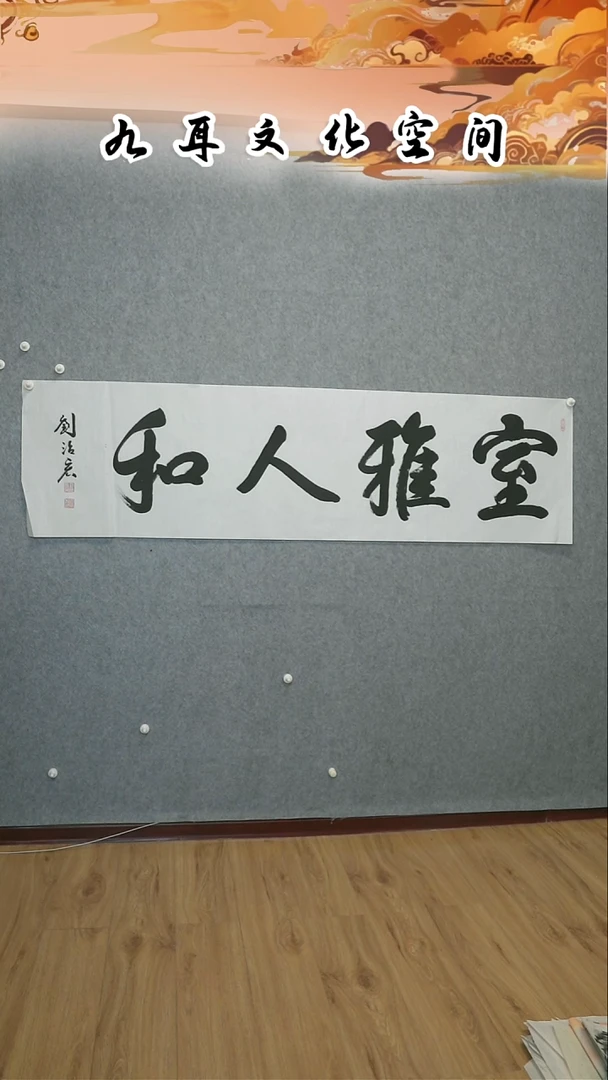 九耳文化空间
室雅人和
劉治宏